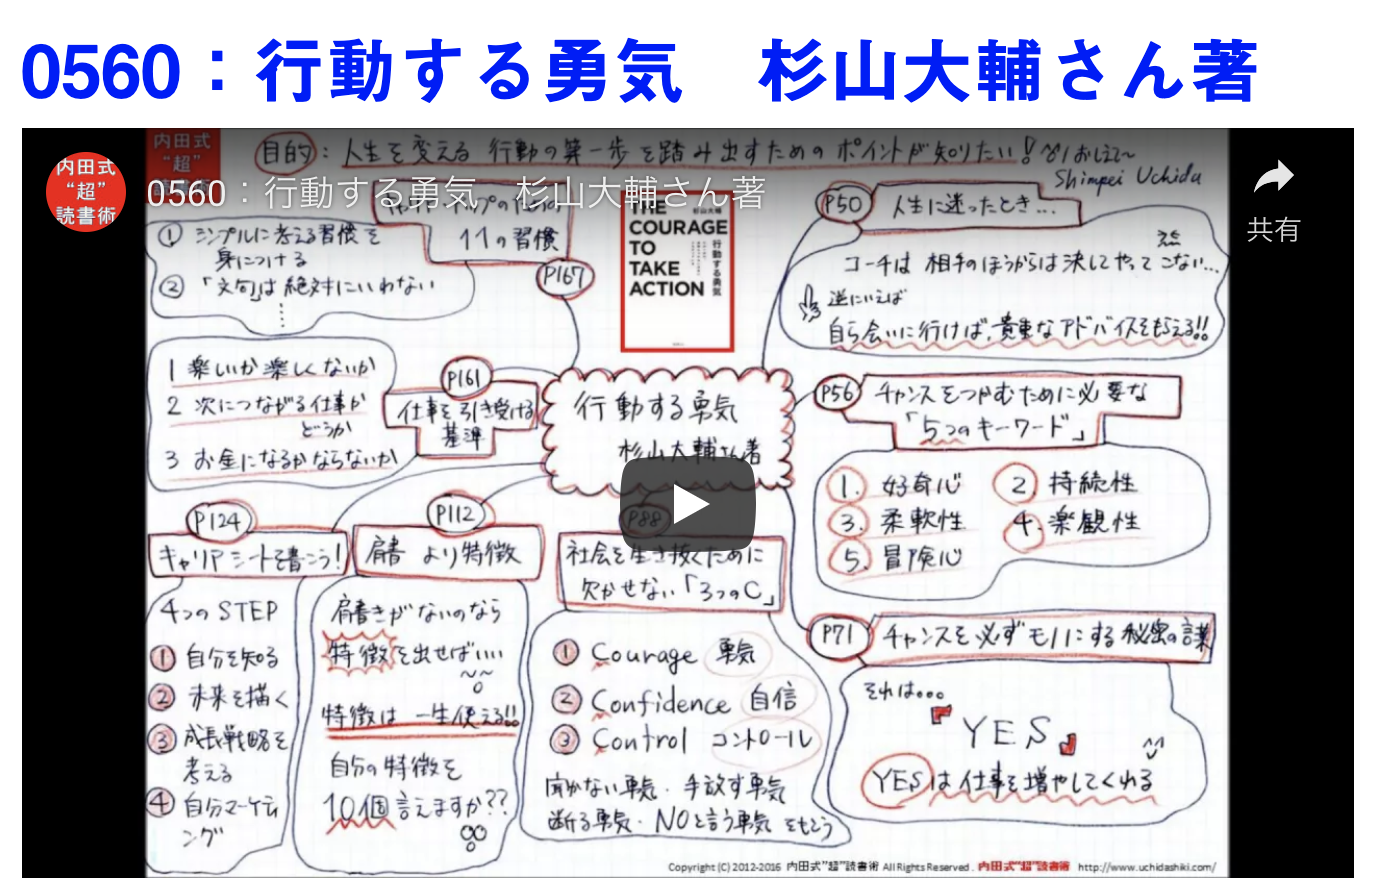 0560：行動する勇気　杉山大輔さん著
内田式
“超”
読書術
0560：行動する勇気　杉山大輔さん著
共有
内田式
“超”
目的：人生を変える行動の第一歩を踏み出すためのポイントが知りたい！おしえて〜
Shimpei Uchida
11の習慣
P167
① シンプルに考える習慣を
身につける
② 「文句」は絶対にいわない
THE
COURAGE
TO
TAKE
ACTION
杉山大輔
行動する勇気
P50
人生に迷ったとき…
コーチは相手のほうからは決してやってこない…
逆にいえば
自ら会いに行けば、貴重なアドバイスをもらえる!!
P161
仕事を引き受ける
基準
1 楽しいか楽しくないか
2 次につながる仕事か
どうか
3 お金になるかならないか
行動する勇気
杉山大輔さん著
P56
チャンスをつかむために必要な
「5つのキーワード」
1. 好奇心
2. 持続性
3. 柔軟性
4. 楽観性
5. 冒険心
P124
キャリアシートを書こう！
4つのSTEP
① 自分を知る
② 未来を描く
③ 成長戦略を
考える
④ 自分マーケティ
ング
P112
肩書より特徴
肩書きがないのなら
特徴を出せばいい
特徴は一生使える!!
自分の特徴を
10個言えますか??
P88
社会を生き抜くために
欠かせない「3つのC」
① Courage 勇気
② Confidence 自信
③ Control コントロール
聞かない勇気・手放す勇気
断る勇気・NOと言う勇気をもとう
P71
チャンスを必ずモノにする秘密の言葉
それは…
『YES』
YESは仕事を増やしてくれる
Copyright (C) 2012-2016 内田式“超”読書術 All Rights Reserved . 内田式“超”読書術 http://www.uchidashiki.com/